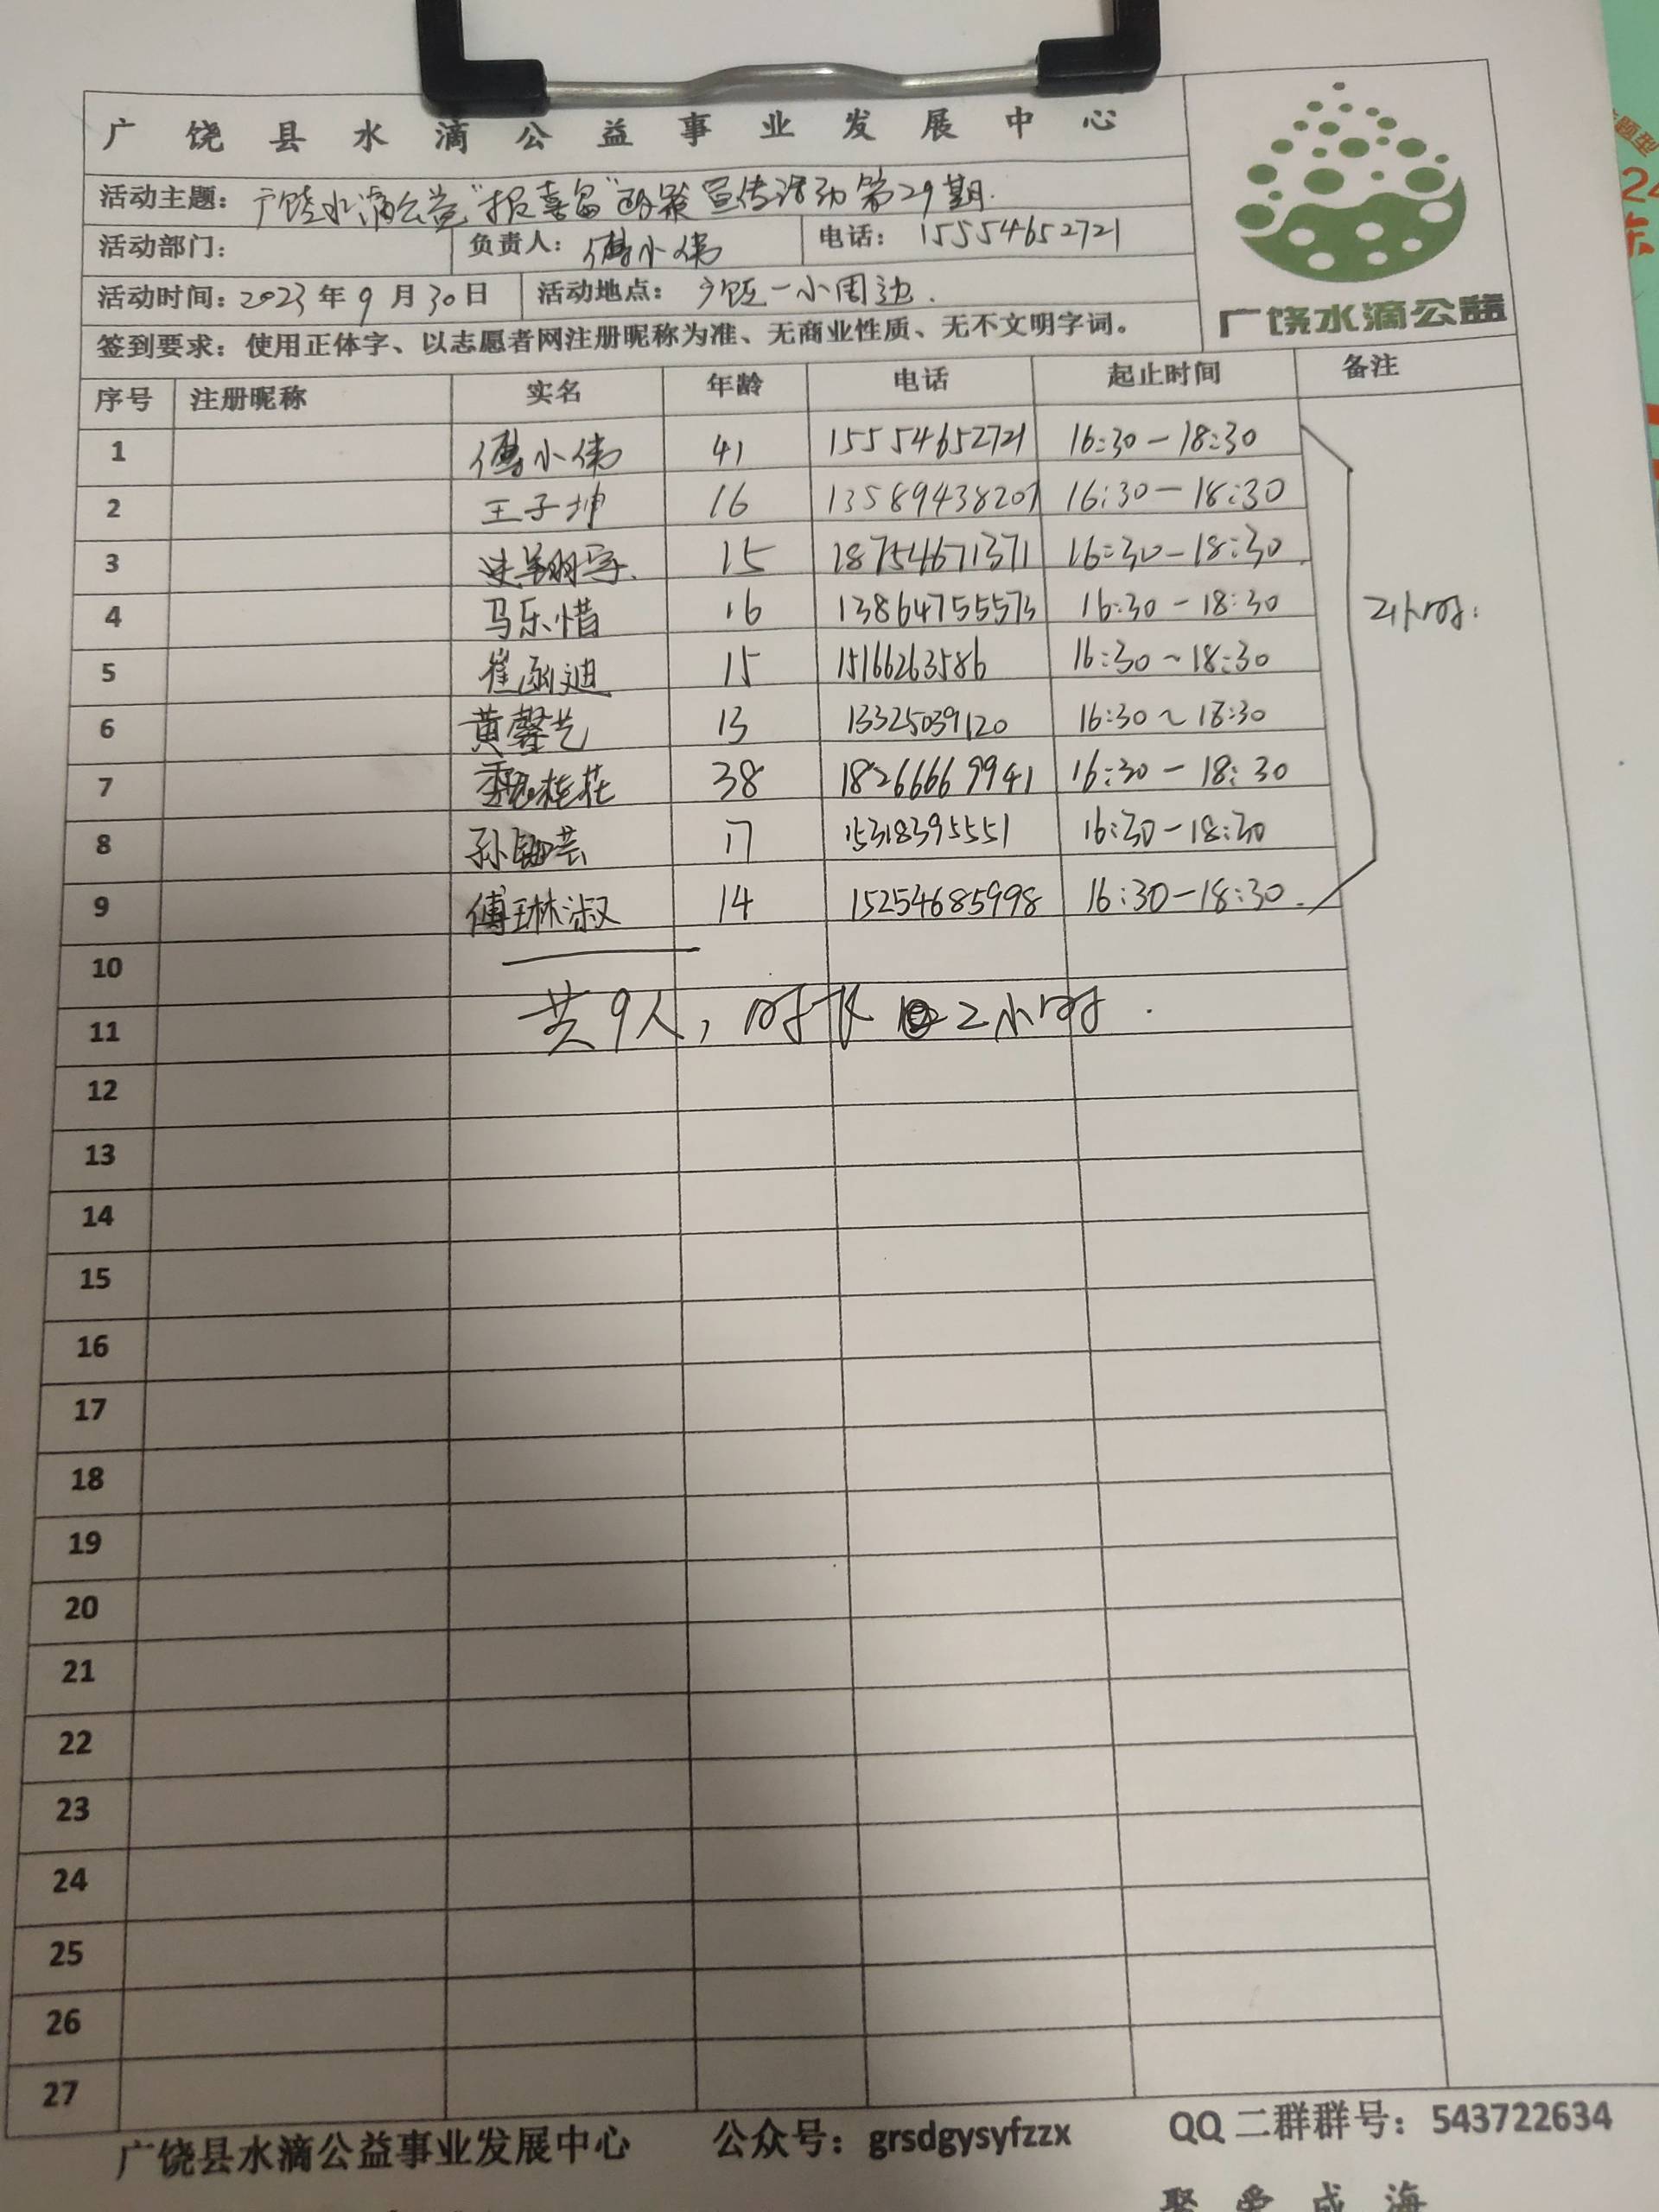 广饶县水滴公益事业发展中心
活动主题：广饶水滴公益“报喜鸟”政策宣传活动第29期.
活动部门： 负责人：傅小伟 电话：15554652721
活动时间：2023年9月30日 活动地点：广饶一小周边.
广饶水滴公益
签到要求：使用正体字、以志愿者网注册昵称为准、无商业性质、无不文明字词。
序号 注册昵称 实名 年龄 电话 起止时间 备注
1 傅小伟 41 15554652721 16:30-18:30
2 王子坤 16 13589438207 16:30-18:30
3 15 18754671371 16:30-18:30
4 马乐惜 16 13864755573 16:30-18:30 2小时.
5 崔函迪 15 15166263586 16:30~18:30
6 黄馨艺 13 13325039120 16:30~18:30
7 桂花 38 18266669941 16:30-18:30
8 孙 芸 17 15318395551 16:30-18:30
9 傅琳淑 14 15254685998 16:30-18:30.
10
共9人，时长2小时.
11
12
13
14
15
16
17
18
19
20
21
22
23
24
25
26
27
广饶县水滴公益事业发展中心 公众号：grsdgysyfzzx QQ二群群号：543722634
聚爱成海